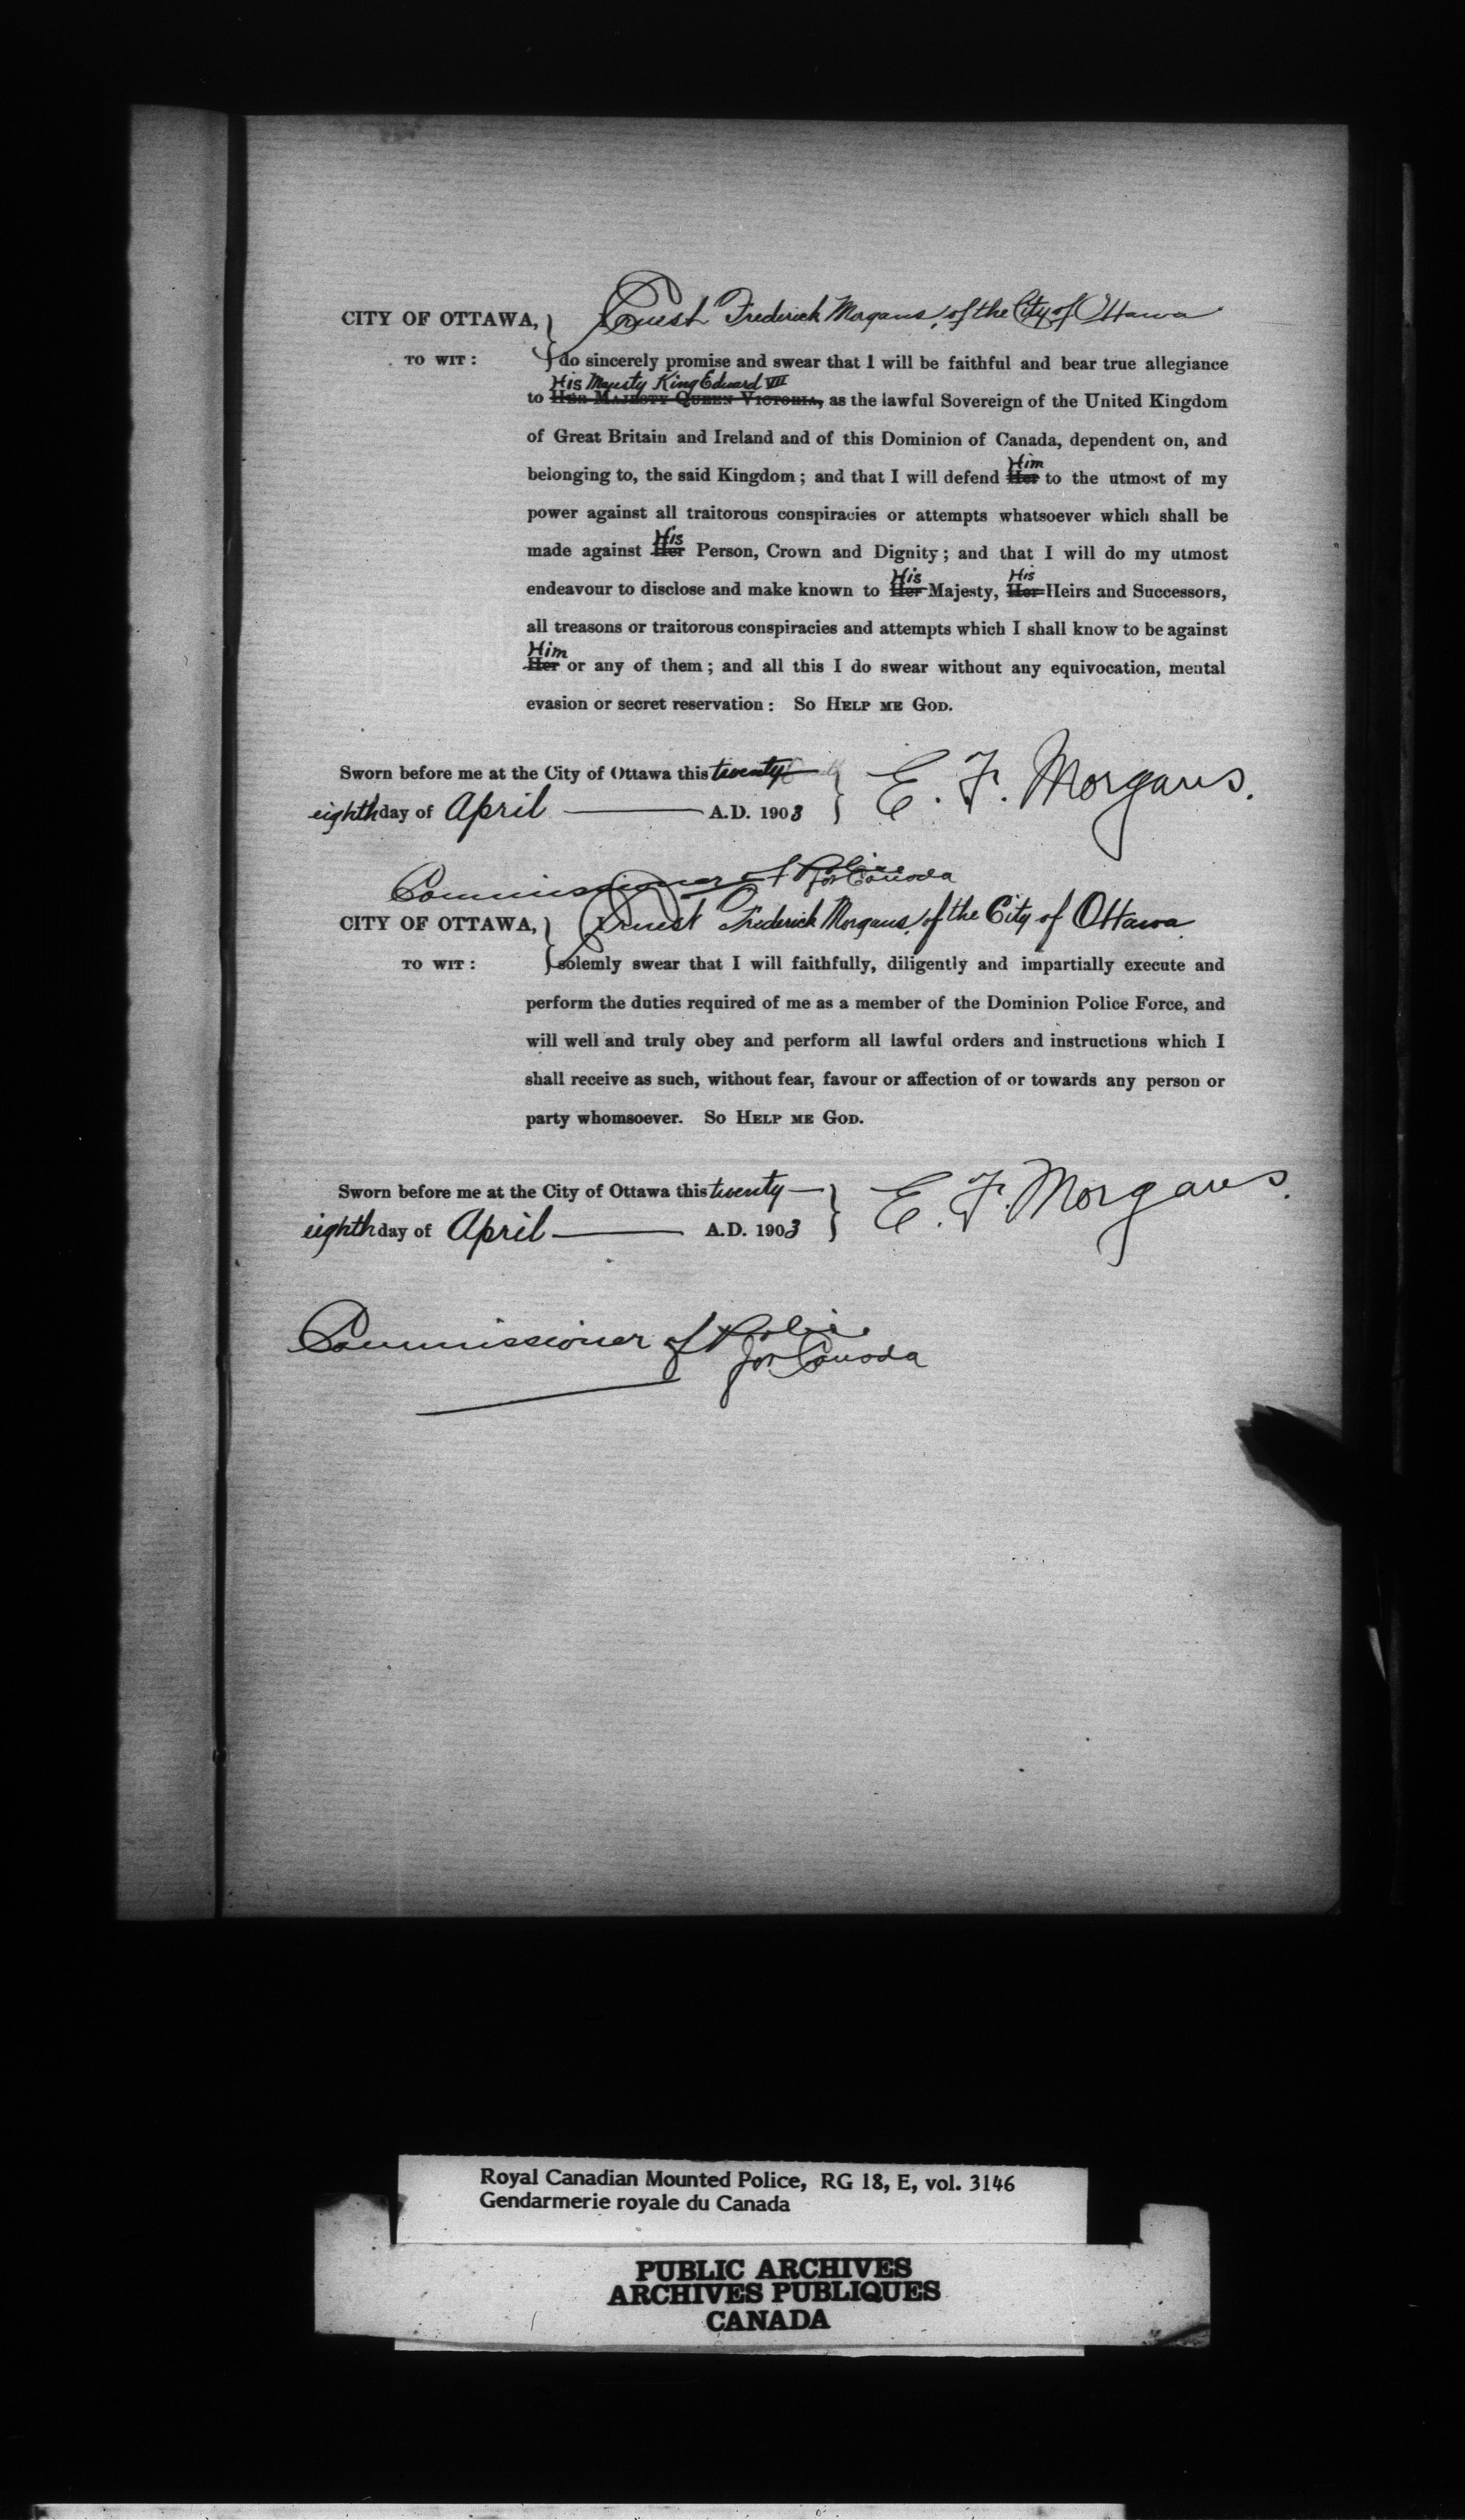 CITY OF OTTAWA, I Ernest Frederick Morgans, of the City of Ottawa
TO WIT : do sincerely promise and swear that I will be faithful and bear true allegiance
His Majesty King Edward VII
to HER MAJESTY QUEEN VICTORIA, as the lawful Sovereign of the United Kingdom
of Great Britain and Ireland and of this Dominion of Canada, dependent on, and
Him
belonging to, the said Kingdom ; and that I will defend Her to the utmost of my
power against all traitorous conspiracies or attempts whatsoever which shall be
His
made against Her Person, Crown and Dignity ; and that I will do my utmost
His His
endeavour to disclose and make known to Her Majesty, Her Heirs and Successors,
all treasons or traitorous conspiracies and attempts which I shall know to be against
Him
Her or any of them ; and all this I do swear without any equivocation, mental
evasion or secret reservation : SO HELP ME GOD.
Sworn before me at the City of Ottawa this twenty
eighth day of April A.D. 1903 E. F. Morgans.
Commissioner of Police
for Canada
CITY OF OTTAWA, I Ernest Frederick Morgans, of the City of Ottawa
TO WIT : solemly swear that I will faithfully, diligently and impartially execute and
perform the duties required of me as a member of the Dominion Police Force, and
will well and truly obey and perform all lawful orders and instructions which I
shall receive as such, without fear, favour or affection of or towards any person or
party whomsoever. SO HELP ME GOD.
Sworn before me at the City of Ottawa this twenty
eighth day of April A.D. 1903 E. F. Morgans.
Commissioner of Police
for Canada
Royal Canadian Mounted Police, RG 18, E, vol. 3146
Gendarmerie royale du Canada
PUBLIC ARCHIVES
ARCHIVES PUBLIQUES
CANADA